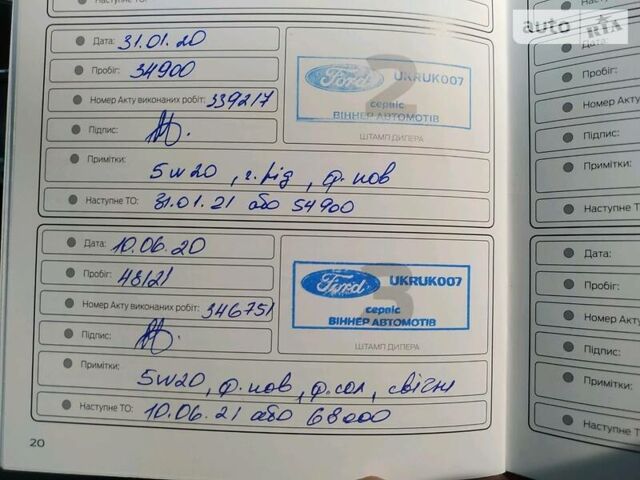 auto RIA
Дата: 31.01.20
Пробіг: 34900
Номер Акту виконаних робіт: 339217
Підпис:
2
Ford UKRUK007
сервіс
ВІННЕР АВТОМОТІВ
ШТАМП ДИЛЕРА
Примітки:
5w20, г.рід, ф.пов
Наступне ТО: 31.01.21 або 54900
Дата: 10.06.20
Пробіг: 48121
Номер Акту виконаних робіт: 346751
Підпис:
3
Ford UKRUK007
сервіс
ВІННЕР АВТОМОТІВ
ШТАМП ДИЛЕРА
Примітки:
5w20, ф.пов, ф.сал, свічки
Наступне ТО: 10.06.21 або 68000
20
Дата:
Пробіг:
Номер Акту
Підпис:
Примітки:
Наступне ТО:
Дата:
Пробіг:
Номер Акту
Підпис:
Примітки:
Наступне ТО: